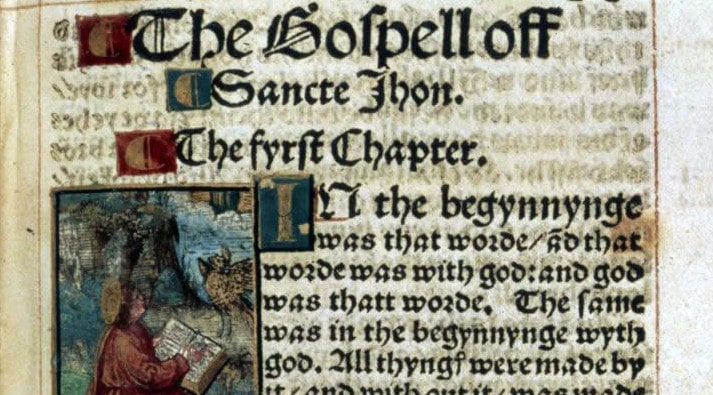 The Gospell off
Sancte Jhon.
The fyrst Chapter.
IN the begynnynge
was that worde/ ād that
worde was with god: and god
was thatt worde. The same
was in the begyn̄ynge wyth
god. All thyngꝭ were made by
it/ and with out it/ was made